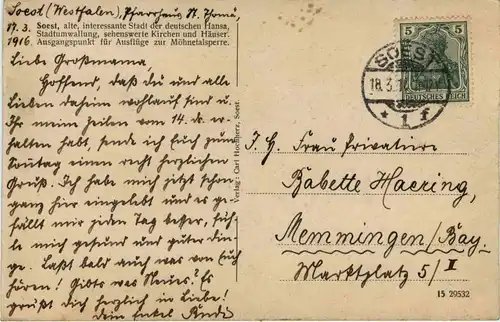 Soest (Westfalen), Pfarrhaus St. Thomä,
17.3.
1916
Soest, alte, interessante Stadt der deutschen Hansa,
Stadtumwallung, sehenswerte Kirchen und Häuser.
Ausgangspunkt für Ausflüge zur Möhnetalsperre.
Liebe Großmama!
Hoffend, daß du und alle
Lieben daheim wohlauf sind u.
Ihr mein Zeilen vom 14. ds. er-
halten habt, sende ich Euch zum
Sonntag einen recht herzlichen
Gruß. Ich habe mich jetzt schon
ganz hier eingelebt und es ge-
fällt mir jeden Tag besser, füh-
le mich gesund und guter Din-
ge. Laßt bald auch was von Euch
hören! Gibts was Neues? Es
grüßt dich herzlich in Liebe!
Dein Enkel
Verlag: Carl Soest.
5 5
DEUTSCHES REICH
SOEST
18.3.
* 1 f
I. H. Frau Privatiere
Babette Haering,
Memmingen/Bay.
Marktplatz 5/I
15 29532